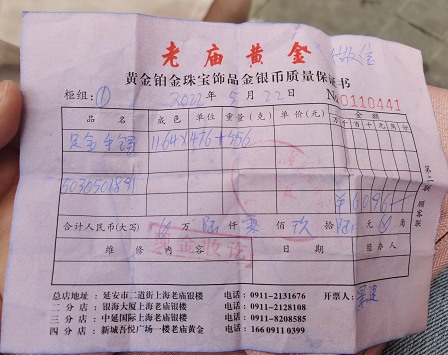 老庙黄金
黄金铂金珠宝饰品金银币质量保证书
柜组: ① 2022年5月22日 No 0110441
品名 成色 单位 重量(克) 单价(元) 金额
万 千 百 十 元 角 分
足金手镯 11.64×476+556
5030501891
¥6096
第二联 顾客联
合计人民币(大写) 万 陆仟 零佰 玖拾 陆元 角
维修内容 日期 经办人
总店地址:延安市二道街上海老庙银楼 电话:0911-2131676 开票人:
二分店:银海大厦上海老庙银楼 电话:0911-2128108
三分店:中延国际上海老庙银楼 电话:0911-8208585
四分店:新城吾悦广场一楼老庙黄金 电话:166 0911 0399